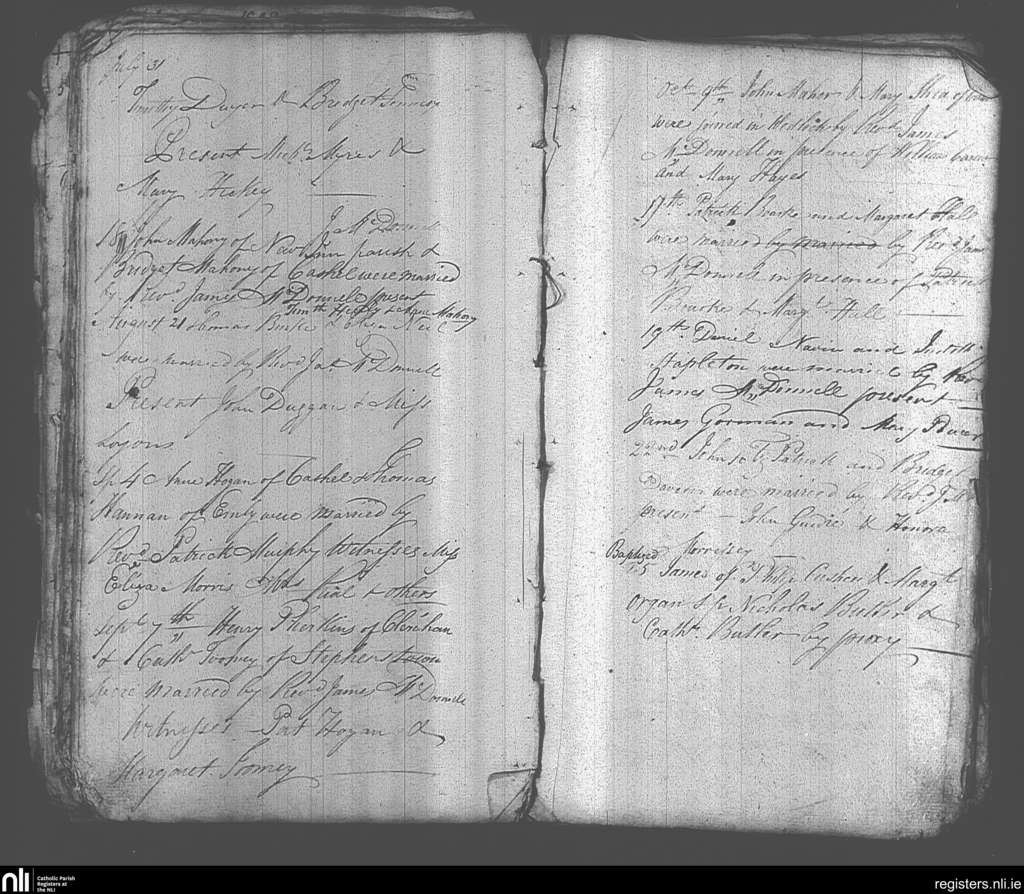 July 31
Timothy Dwyer & Bridget
Present Mich. Myres &
Mary Hickey
J. McDonnell
18th John Mahony of New Inn parish &
Bridget Mahony of Cashel were married
by Revd. James McDonnell present
Timth Heffy & Mahony
August 21 Thomas Burke & Ellen Neil
were married by Revd Jas McDonnell
Present John Duggan & Miss
Lyons
Sp 4 Anne Hogan of Cashel & Thomas
Hannan of Emly were married by
Revd. Patrick Murphy Witnesses Miss
Eliza Morris & others
Septr 7th Henry of Clerihan
& Cath Toomey of Stephenstown
were married by Revd James McDonnell
Witnesses Pat Hogan &
Margaret Toomey
Oct 9th John Maher & Mary Shea of
were joined in Wedlock by Revd. James
McDonnell in presence of William
and Mary Hayes
17th Patrick Bourke and Margaret Hall
were married by married by Revd James
McDonnell in presence of Patrick
Bourke & Margt. Hall
19th Daniel Navin and
Stapleton were married by Revd
James McDonnell present
James Gorman and Mary Power
22nd John Patrick and Bridget
were married by Revd J. M
present John & Honora
Morrissey
Baptized
James of Philip Cushen & Margt
Organ Sp Nicholas Butler &
Cathn. Butler by proxy
nli
Catholic Parish
Registers at
the NLI
registers.nli.ie